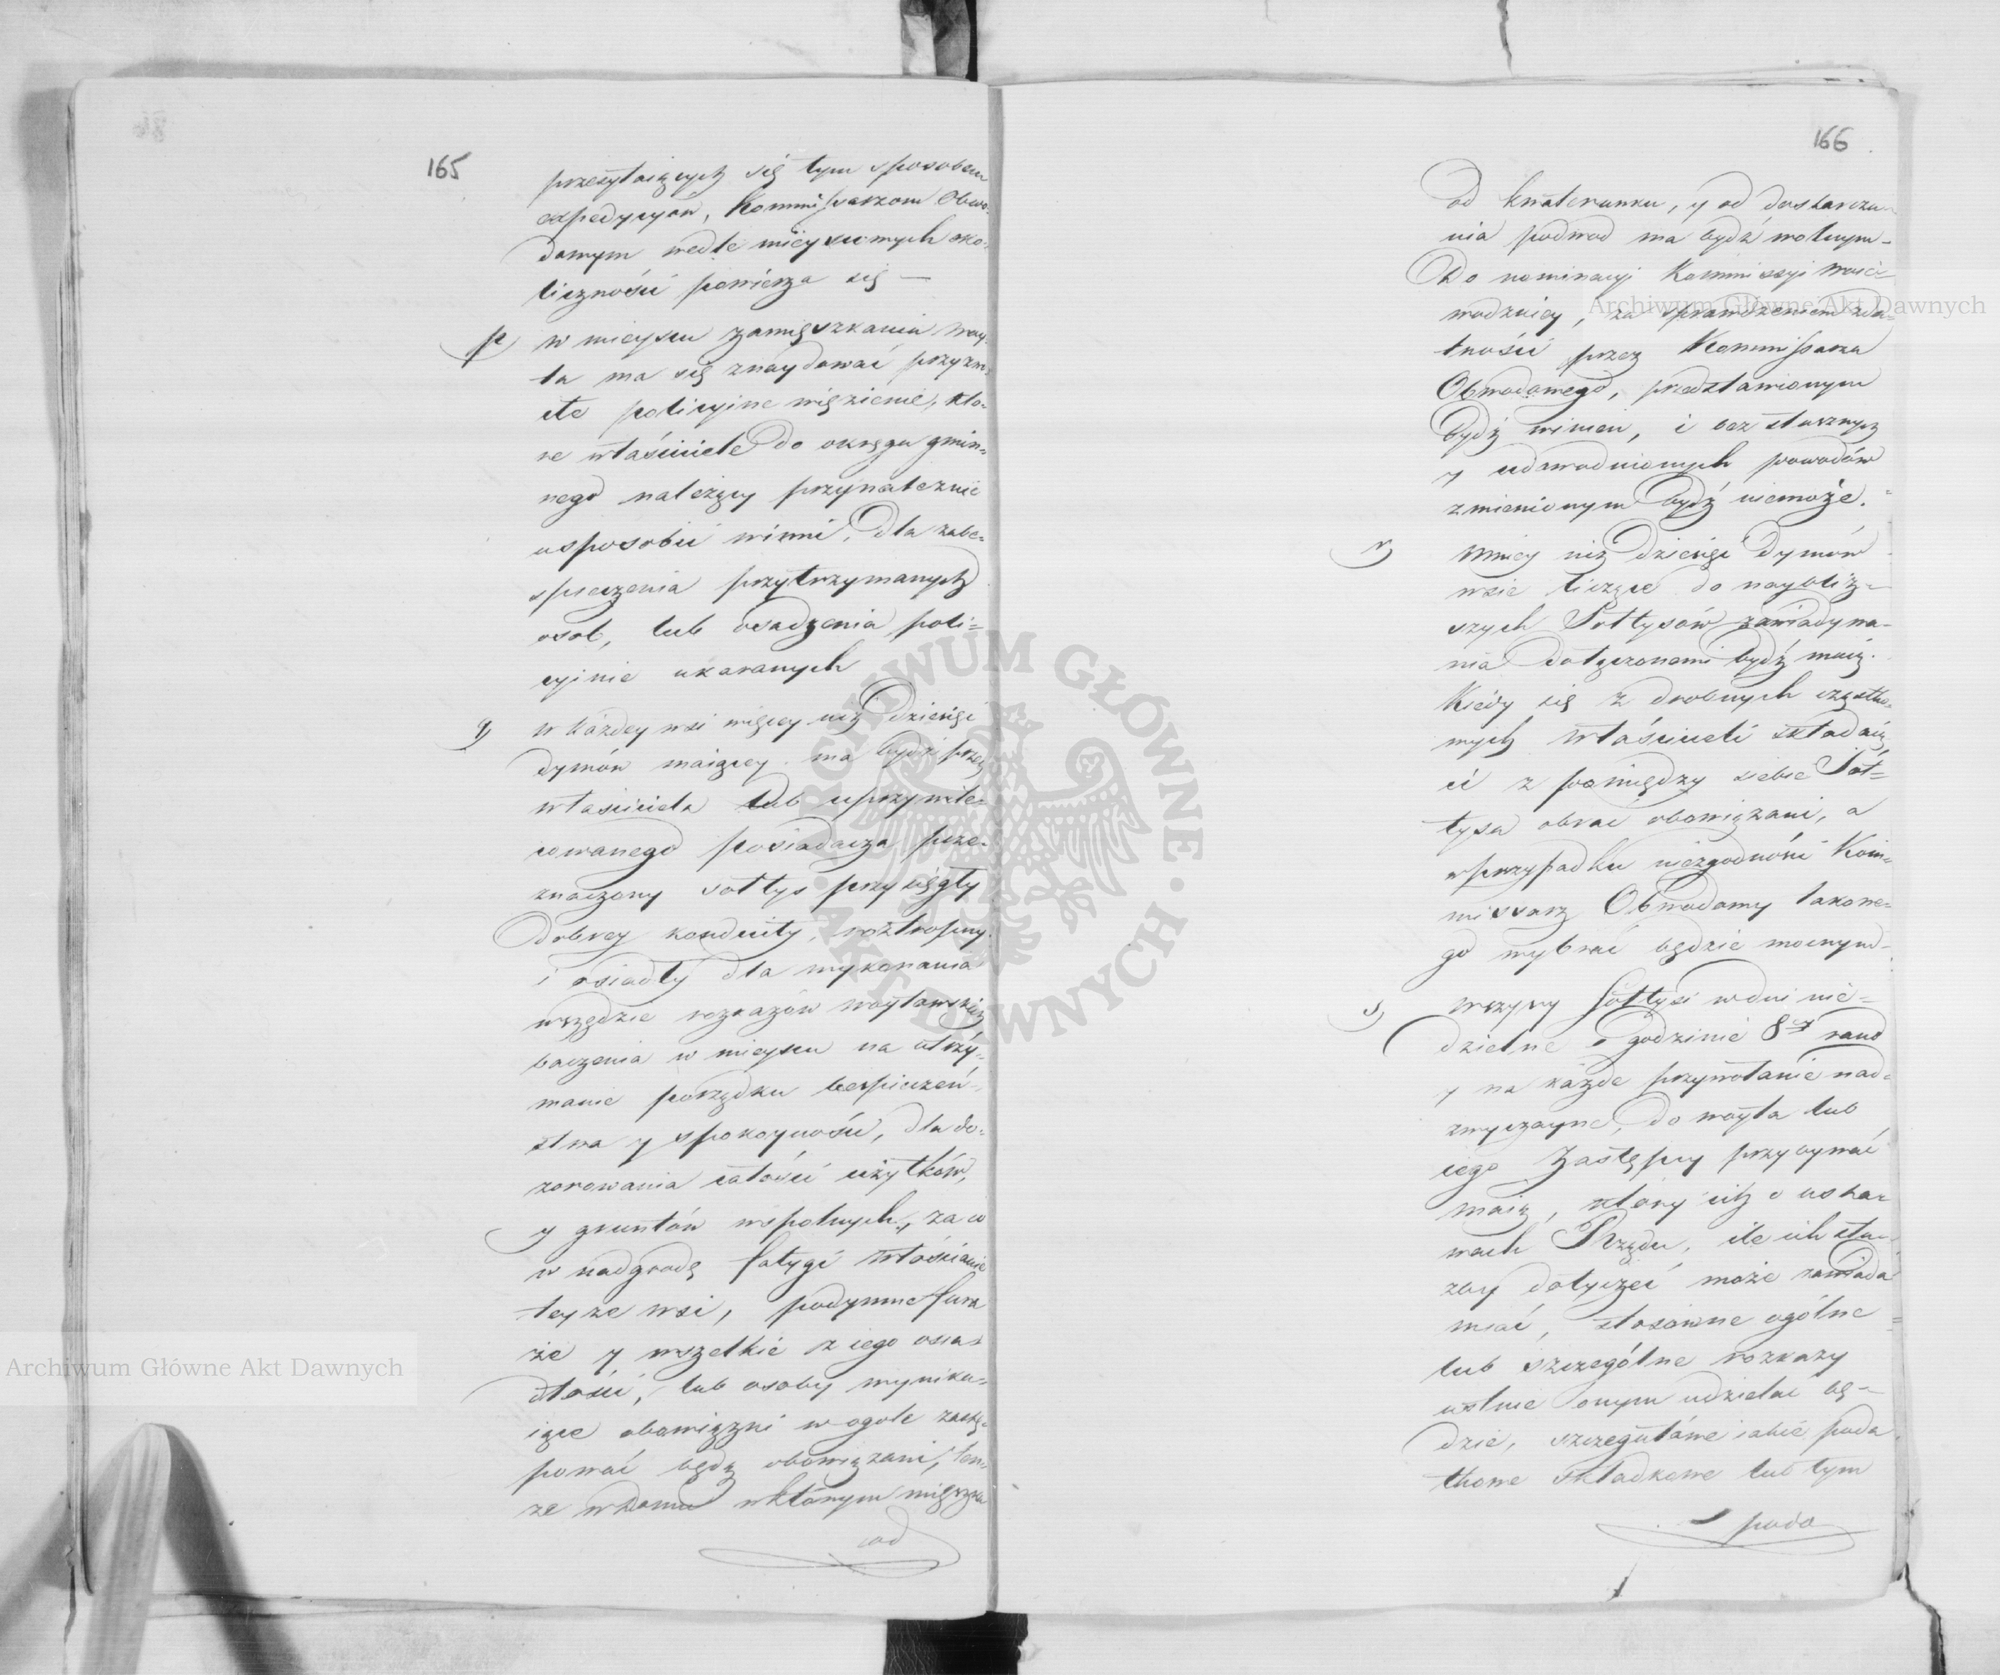 165
przesyłaiących się tym sposobem
expedycyów, Kommissarzom Obwo-
dowym wedle mieyscowych oko-
liczności powierza się —
p) w mieyscu zamięszkania Woy-
ta ma się znaydować przyzwo-
ite policyjne więzienie, któ-
re właściciele do okręgu gmin-
nego należący przynależnie
usposobić winni, dla zabe-
spieczenia przytrzymanych
osob, lub osadzenia poli=
cyjnie ukaranych
q) w każdey wsi więcey niż dziesięć
dymów maiącey ma bydź przez
właściciela lub uprzywile-
iowanego posiadacza prze-
znaczony sołtys przysięgły
dobrey konduity, roztropny
i osiadły dla wykonania
wszędzie rozkazów woytowskich
baczenia w mieyscu na utrzy-
manie porządku bespieczeń-
stwa y spokoyności, dla do-
zorowania całości użytków,
y gruntów wspolnych, za co
w nadgrodę fatygi włościanie
teyże wsi, podymne fura
że y wszelkie z iego osia-
dłości, lub osoby wynika-
iące obowiązki w ogóle zastę-
pować będą obowiązani, tam-
że w domu w którym mięszka
od
166
od kwaterunku, y od dostarcza-
nia podwod ma bydź wolnym-
Do nominacyi Kommissyi Woie-
wodzkiey, za sprawdzeniem zda-
tności przez Kommissarza
Obwodowego, przedstawionym
bydź winien, i bez słusznych
y udowodnionych powodów
zmienionym bydź niemoże.
r) Mniey niż dziesięć dymów
wsie liczące do naybliż-
szych Sołtysów zawiadywa-
nia dołączonemi bydź maią.
Kiedy się z drobnych cząstko-
wych właścicieli składaią
ci z pomiędzy siebie Soł=
tysa obrać obowiązani, a
w przypadku niezgodności Kom-
missarz Obwodowy takowe-
go wybrać będzie mocnym-
s) wszyscy Sołtysi w dni nie-
dzielne o godzinie 8ey rano
y na każde przywołanie nad-
zwyczayne, do woyta lub
iego Zastępcy przybywać
maią, który ich o usta-
wach Rządu, ile ich sta-
zby dotyczeć może zawiada
miać, stosowne ogólne
lub szczególne rozkazy
ustnie onym udzielać bę-
dzie, szczegułowe iakie poda
tkowe składkowe lub tym
podo
Archiwum Główne Akt Dawnych
Archiwum Główne Akt Dawnych
ARCHIWUM GŁÓWNE · AKT DAWNYCH ·